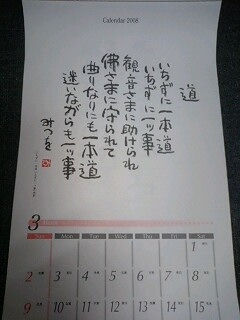 Calendar 2008
道
いちずに一本道
いちずに一ッ事
観音さまに助けられ
佛さまに守られて
曲りなりにも一本道
迷いながらも一ッ事
みつを
3
Sun Mon Tue Wed Thu Fri Sat
1
2 3 4 5 6 7 8
9 10 11 12 13 14 15